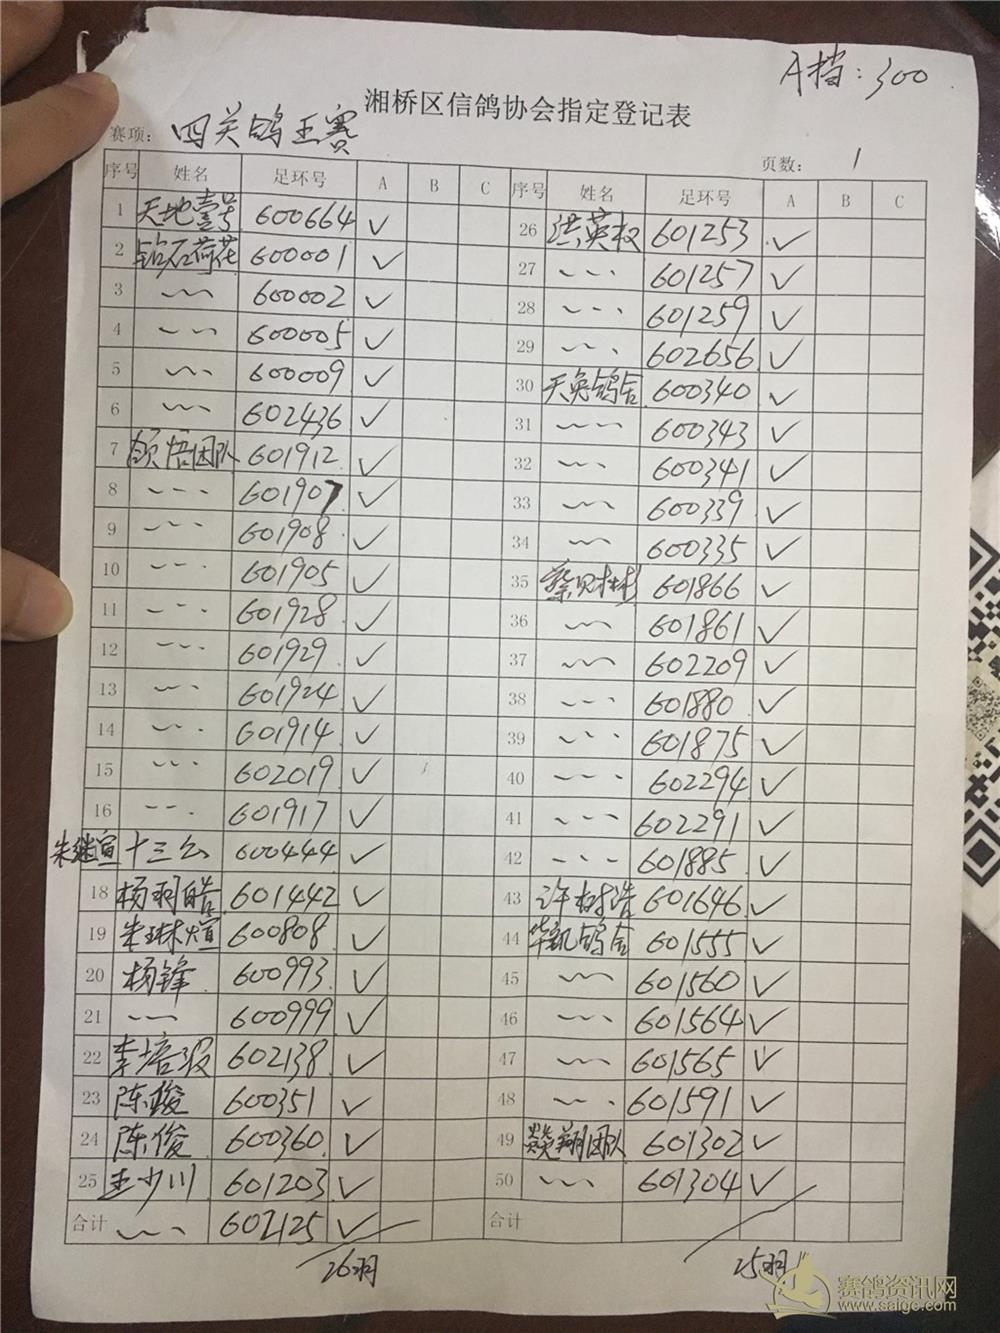 A档：300
湘桥区信鸽协会指定登记表
赛项：四关鸽王赛
页数：1
序号 姓名 足环号 A B C 序号 姓名 足环号 A B C
1 天地壹号 600664 ✓ 26 洪英权 601253 ✓
2 钻石荷花 600001 ✓ 27 ~~~ 601257 ✓
3 ~~~ 600002 ✓ 28 ~~~ 601259 ✓
4 ~~~ 600005 ✓ 29 ~~~ 602656 ✓
5 ~~~ 600009 ✓ 30 天兔鸽舍 600340 ✓
6 ~~~ 602436 ✓ 31 ~~~ 600343 ✓
7 颌悟团队 601912 ✓ 32 ~~~ 600341 ✓
8 ~~~ 601907 ✓ 33 ~~~ 600339 ✓
9 ~~~ 601908 ✓ 34 ~~~ 600335 ✓
10 ~~~ 601905 ✓ 35 601866 ✓
11 ~~~ 601928 ✓ 36 ~~~ 601861 ✓
12 ~~~ 601929 ✓ 37 ~~~ 602209 ✓
13 ~~~ 601924 ✓ 38 ~~~ 601880 ✓
14 ~~~ 601914 ✓ 39 ~~~ 601875 ✓
15 ~~~ 602019 ✓ 40 ~~~ 602294 ✓
16 ~~~ 601917 ✓ 41 ~~~ 602291 ✓
朱继宣 十三公 600444 ✓ 42 ~~~ 601885 ✓
18 杨羽皓 601442 ✓ 43 许树浩 601646 ✓
19 朱琳煊 600808 ✓ 44 华凯鸽舍 601555 ✓
20 杨锋 600993 ✓ 45 ~~~ 601560 ✓
21 ~~~ 600999 ✓ 46 ~~~ 601564 ✓
22 李培 602138 ✓ 47 ~~~ 601565 ✓
23 陈骏 600351 ✓ 48 ~~~ 601591 ✓
24 陈俊 600360 ✓ 49 燚翔团队 601302 ✓
25 王少川 601203 ✓ 50 ~~~ 601304 ✓
合计 ~~~ 602125 ✓ 合计
26羽 25羽
赛鸽资讯网
www.saige.com